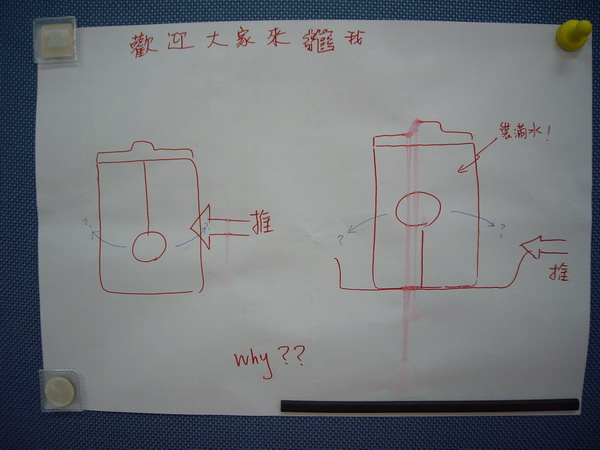 歡迎大家來我
裝滿水!
? ?
推
? ?
推
why??